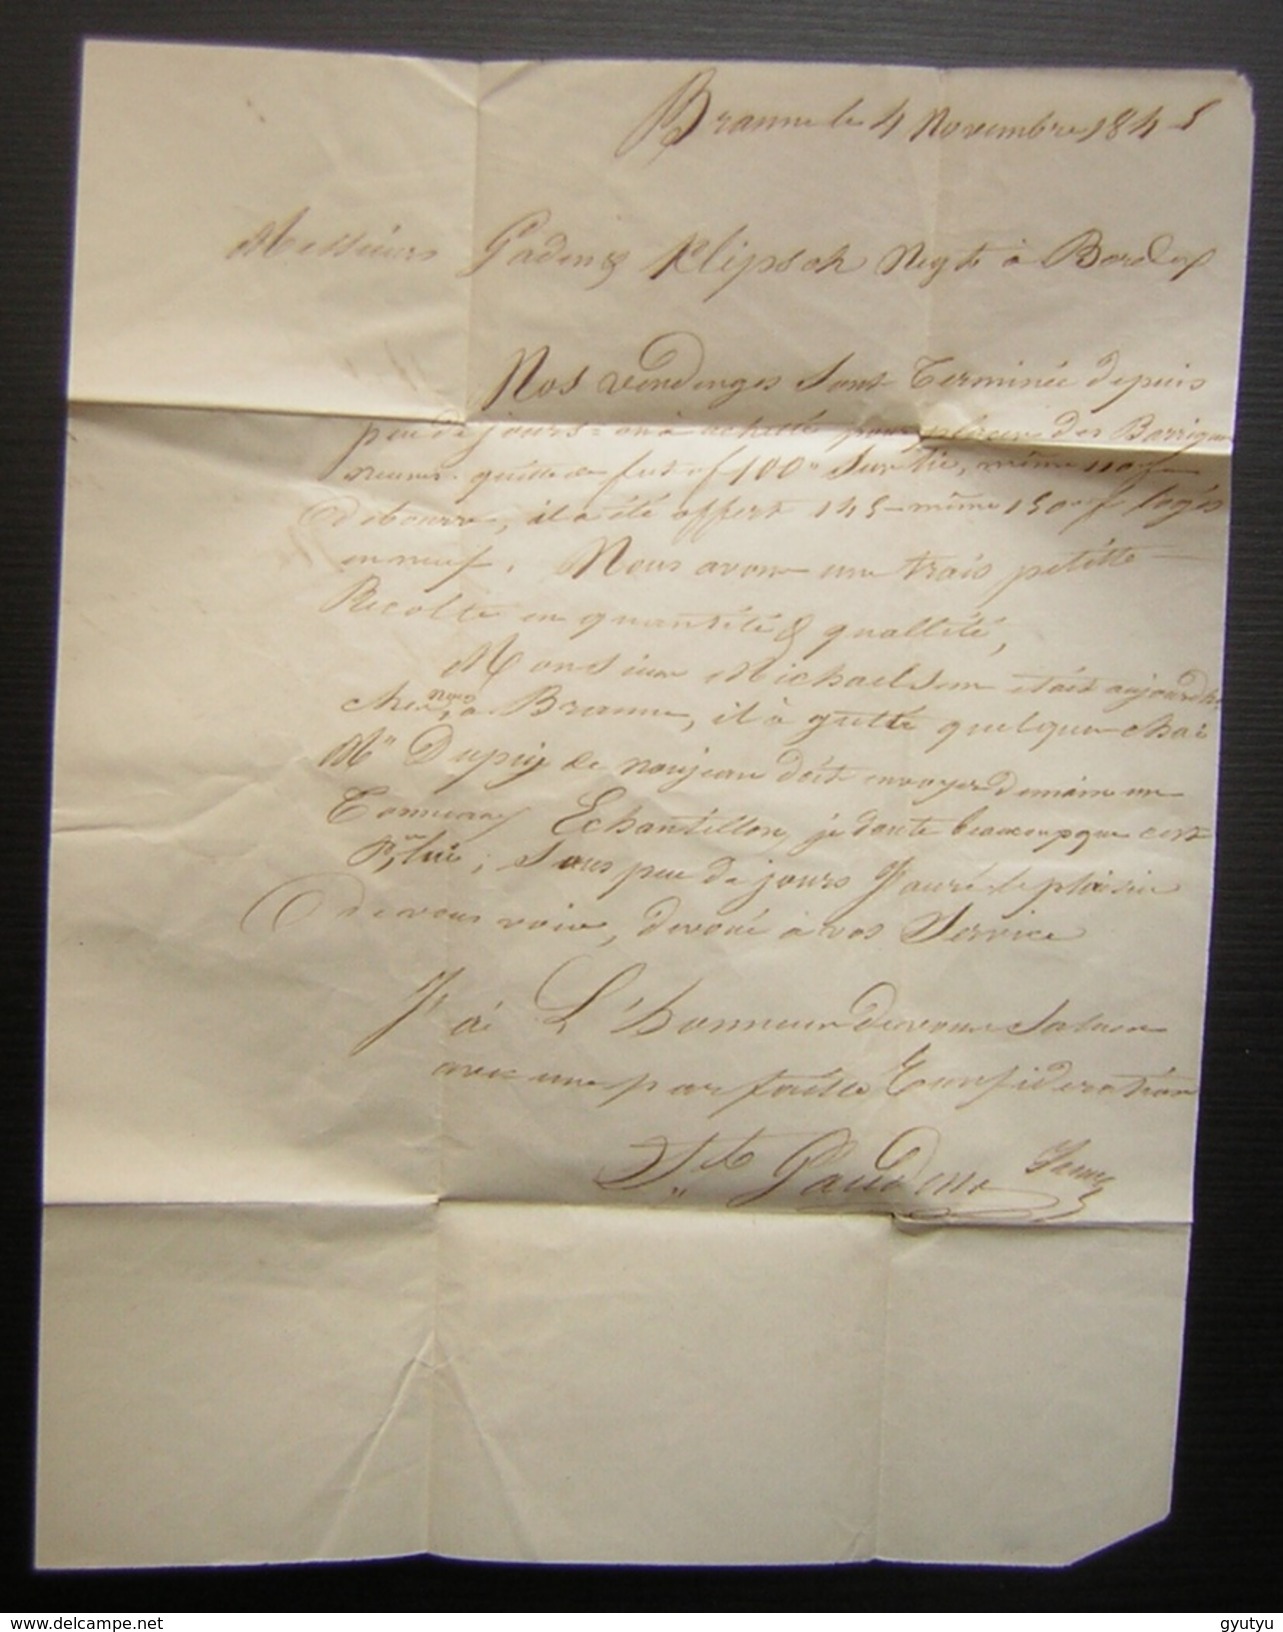 Branne le 4 Novembre 1845
Messieurs Gaden & Klipsch Negts à Bordx
Nos vendenges sont terminée depuis
peu de jours = on à achetté pour des Barriques
neuves fut f 100" sur lie, même 110 f
debourre, il a été offert 145 même 150 f logés
en neuf. Nous avons une trais petitte
Recolte en quantité & quallité,
Monsieur Michaelsen était aujourdhi
chez nous, a Branne, il à gutté quelque chai
Mr Dupuy de noujean doit envoyer demain un
Echantillon, je doute beaucoup que cest
pr lui; Sous peu de jours J'auré le plaisir
de vous voir, devoué à vos Service
J'ai L'honneur de vous saluer
avec une parfaitte Consideration
Gaudens Jeune
delcampe.net
gyutyu